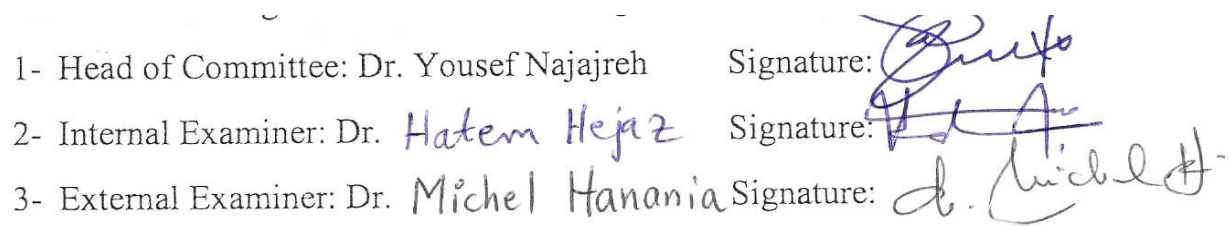 1- Head of Committee: Dr. Yousef Najajreh Signature:
2- Internal Examiner: Dr. Hatem Hejaz Signature:
3- External Examiner: Dr. Michel Hanania Signature: d. Michel H